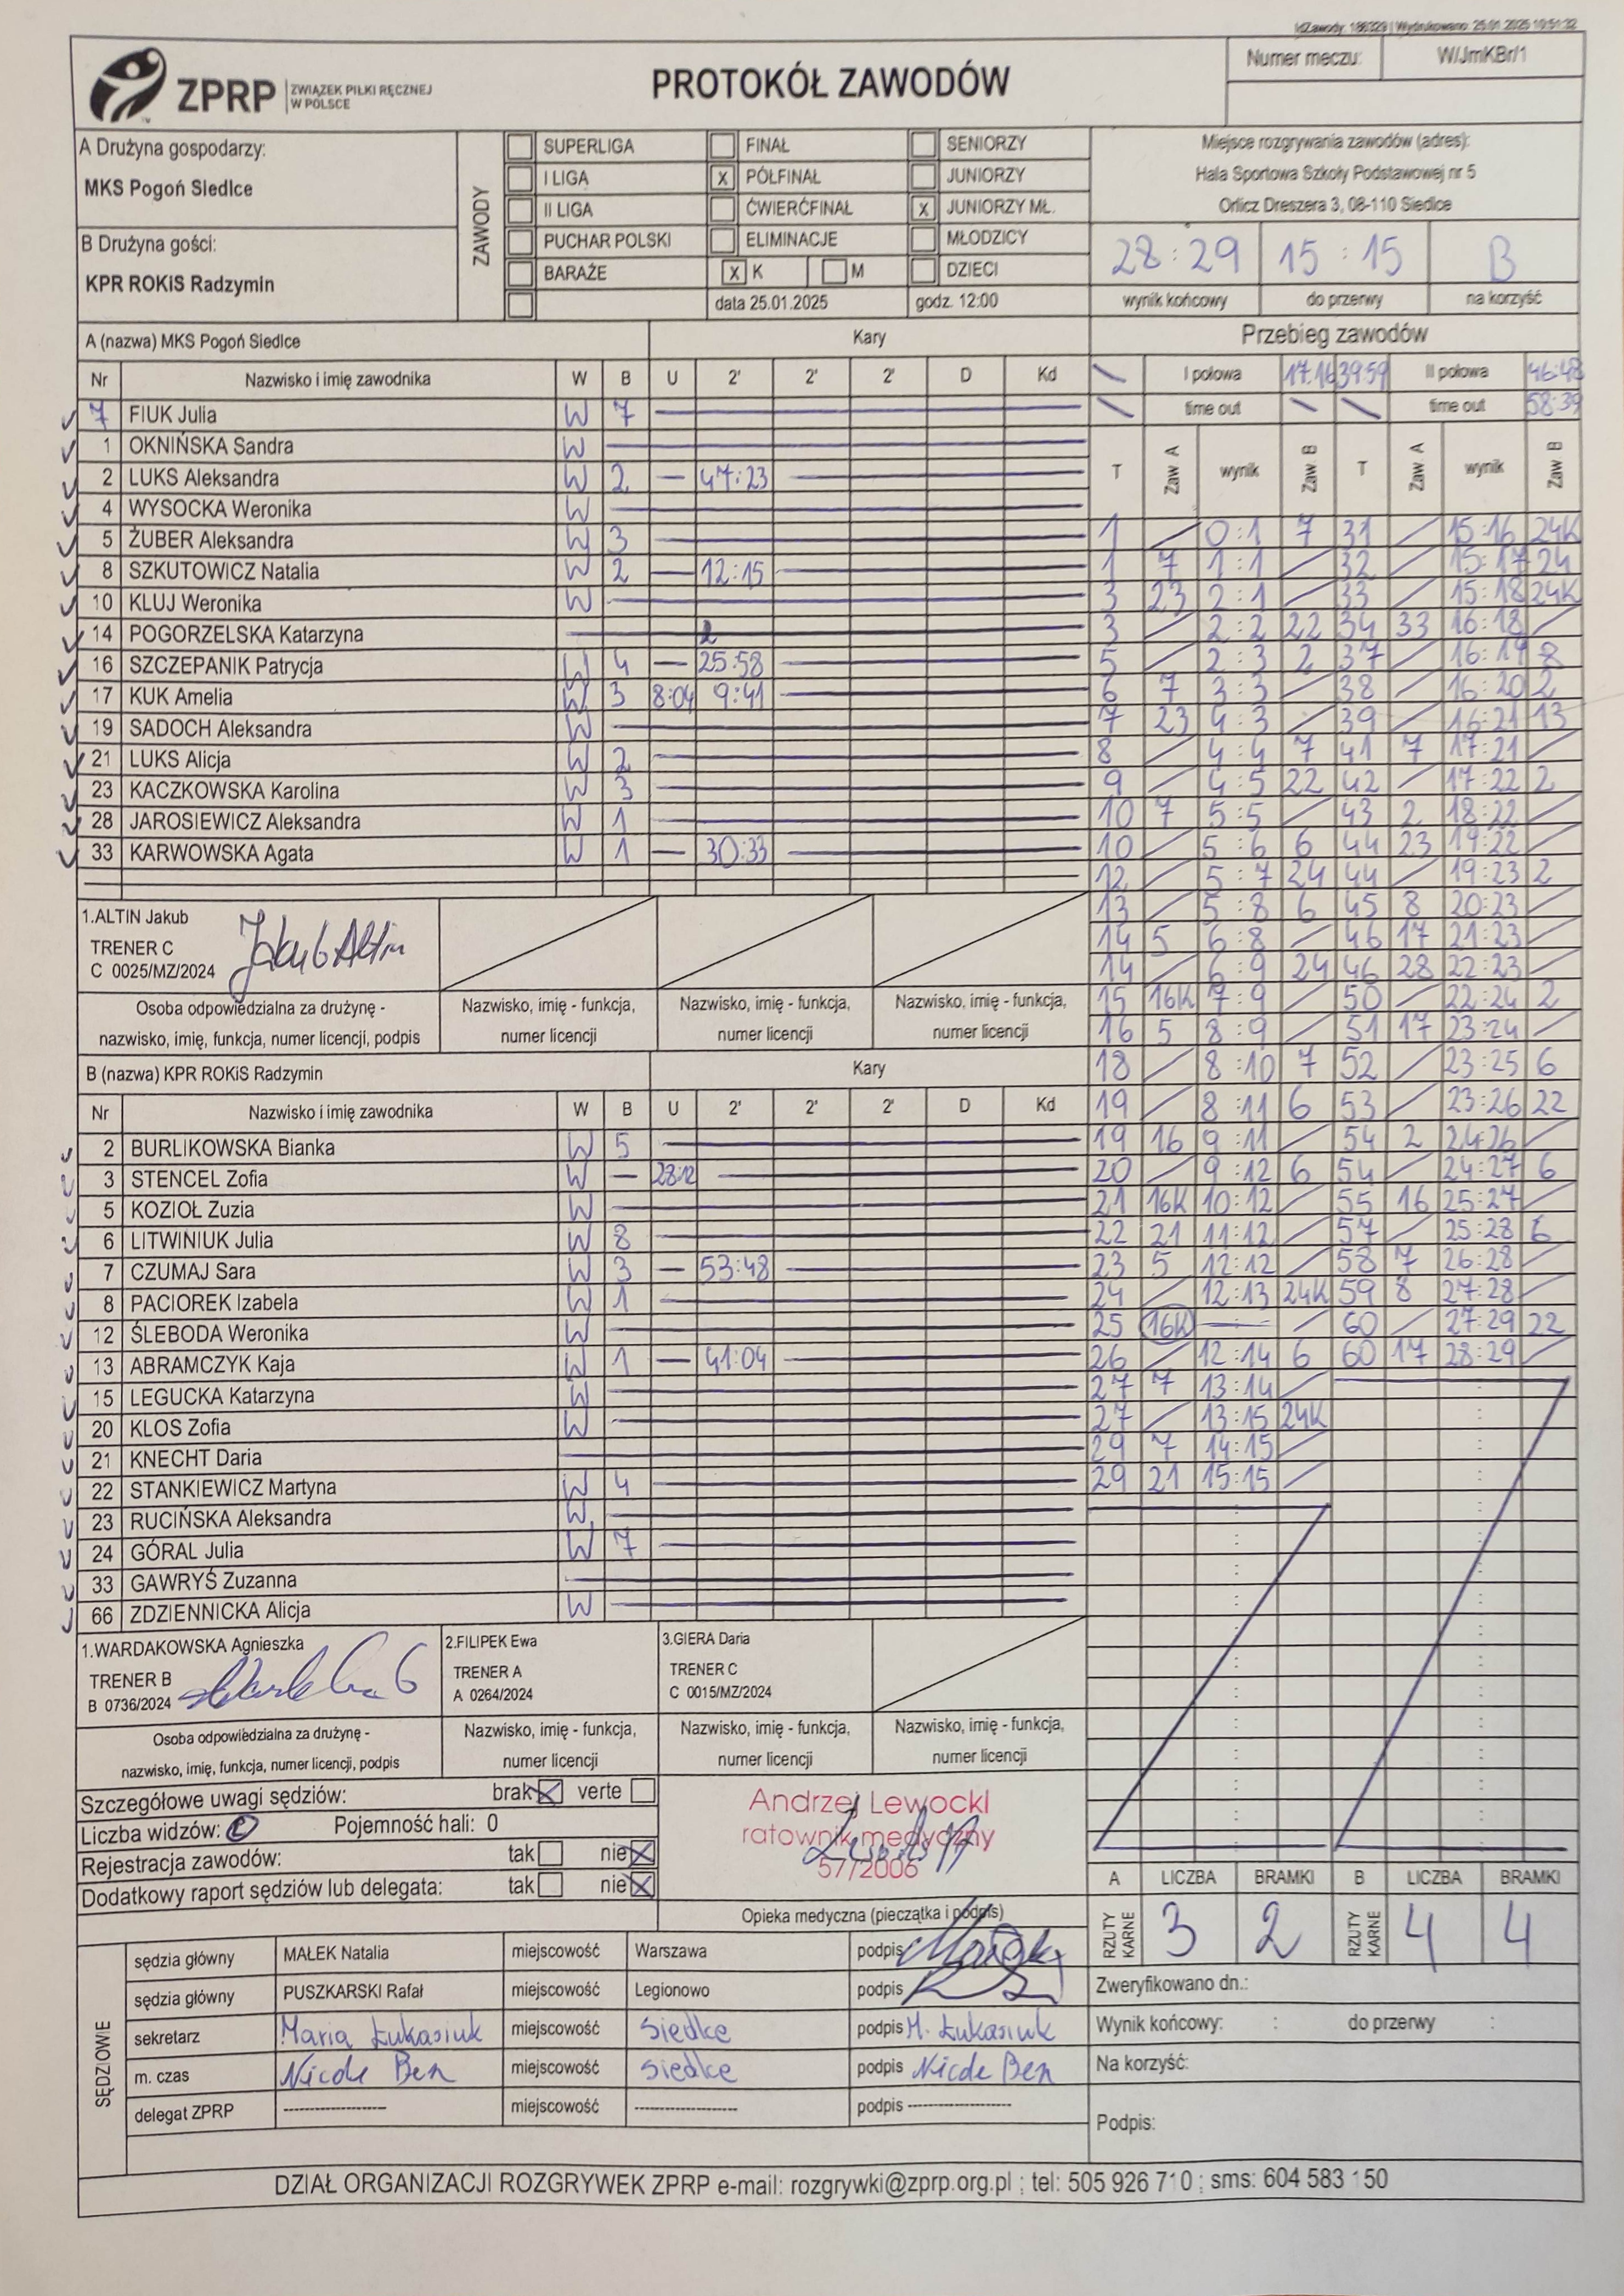 IdZawody: 186329 | Wydrukowano: 25.01.2025 10:51:32
ZPRP ZWIĄZEK PIŁKI RĘCZNEJ W POLSCE
PROTOKÓŁ ZAWODÓW
Numer meczu: W/JmKBr/1
A Drużyna gospodarzy:
MKS Pogoń Siedlce
B Drużyna gości:
KPR ROKiS Radzymin
ZAWODY
SUPERLIGA FINAŁ SENIORZY
I LIGA X PÓŁFINAŁ JUNIORZY
II LIGA ĆWIERĆFINAŁ X JUNIORZY MŁ.
PUCHAR POLSKI ELIMINACJE MŁODZICY
BARAŻE X K M DZIECI
data 25.01.2025 godz. 12:00
Miejsce rozgrywania zawodów (adres):
Hala Sportowa Szkoły Podstawowej nr 5
Orlicz Dreszera 3, 08-110 Siedlce
28:29 15:15 B
wynik końcowy do przerwy na korzyść
A (nazwa) MKS Pogoń Siedlce Kary
Nr Nazwisko i imię zawodnika W B U 2' 2' 2' D Kd
7 FIUK Julia W 7
1 OKNIŃSKA Sandra W
2 LUKS Aleksandra W 2 — 47:23
4 WYSOCKA Weronika W
5 ŻUBER Aleksandra W 3
8 SZKUTOWICZ Natalia W 2 — 12:15
10 KLUJ Weronika W
14 POGORZELSKA Katarzyna
16 SZCZEPANIK Patrycja W 4 — 25:58
17 KUK Amelia W 3 8:04 9:41
19 SADOCH Aleksandra W
21 LUKS Alicja W 2
23 KACZKOWSKA Karolina W 3
28 JAROSIEWICZ Aleksandra W 1
33 KARWOWSKA Agata W 1 — 30:33
1.ALTIN Jakub
TRENER C
C 0025/MZ/2024
Jakub Altin
Osoba odpowiedzialna za drużynę -
nazwisko, imię, funkcja, numer licencji, podpis
Nazwisko, imię - funkcja,
numer licencji
Nazwisko, imię - funkcja,
numer licencji
Nazwisko, imię - funkcja,
numer licencji
B (nazwa) KPR ROKiS Radzymin Kary
Nr Nazwisko i imię zawodnika W B U 2' 2' 2' D Kd
2 BURLIKOWSKA Bianka W 5
3 STENCEL Zofia W — 28:12
5 KOZIOŁ Zuzia W
6 LITWINIUK Julia W 8
7 CZUMAJ Sara W 3 — 53:48
8 PACIOREK Izabela W 1
12 ŚLEBODA Weronika W
13 ABRAMCZYK Kaja W 1 — 41:04
15 LEGUCKA Katarzyna W
20 KLOS Zofia W
21 KNECHT Daria
22 STANKIEWICZ Martyna W 4
23 RUCIŃSKA Aleksandra W
24 GÓRAL Julia W 7
33 GAWRYŚ Zuzanna
66 ZDZIENNICKA Alicja W
1.WARDAKOWSKA Agnieszka
TRENER B
B 0736/2024
2.FILIPEK Ewa
TRENER A
A 0264/2024
3.GIERA Daria
TRENER C
C 0015/MZ/2024
Osoba odpowiedzialna za drużynę -
nazwisko, imię, funkcja, numer licencji, podpis
Nazwisko, imię - funkcja,
numer licencji
Nazwisko, imię - funkcja,
numer licencji
Nazwisko, imię - funkcja,
numer licencji
Przebieg zawodów
I połowa 17:16 39:59 II połowa 46:48
time out time out 58:39
T Zaw A wynik Zaw B T Zaw A wynik Zaw B
1 / 0:1 7 31 / 15:16 24K
1 7 1:1 / 32 / 15:17 24
3 23 2:1 / 33 / 15:18 24K
3 / 2:2 22 34 33 16:18 /
5 / 2:3 2 37 / 16:19 8
6 7 3:3 / 38 / 16:20 2
7 23 4:3 / 39 / 16:21 13
8 / 4:4 7 41 7 17:21 /
9 / 4:5 22 42 / 17:22 2
10 7 5:5 / 43 2 18:22 /
10 / 5:6 6 44 23 19:22 /
12 / 5:7 24 44 / 19:23 2
13 / 5:8 6 45 8 20:23 /
14 5 6:8 / 46 17 21:23 /
14 / 6:9 24 46 28 22:23 /
15 16K 7:9 / 50 / 22:24 2
16 5 8:9 / 51 17 23:24 /
18 / 8:10 7 52 / 23:25 6
19 / 8:11 6 53 / 23:26 22
19 16 9:11 / 54 2 24:26 /
20 / 9:12 6 54 / 24:27 6
21 16K 10:12 / 55 16 25:27 /
22 21 11:12 / 57 / 25:28 6
23 5 12:12 / 58 7 26:28 /
24 / 12:13 24K 59 8 27:28 /
25 16K — / 60 / 27:29 22
26 / 12:14 6 60 17 28:29 /
27 7 13:14 /
27 / 13:15 24K
29 7 14:15 /
29 21 15:15 /
Szczegółowe uwagi sędziów: brak X verte
Liczba widzów: 0 Pojemność hali: 0
Rejestracja zawodów: tak nie X
Dodatkowy raport sędziów lub delegata: tak nie X
Andrzej Lewocki
ratownik medyczny
57/2006
Opieka medyczna (pieczątka i podpis)
A LICZBA BRAMKI B LICZBA BRAMKI
RZUTY KARNE 3 2 RZUTY KARNE 4 4
SĘDZIOWIE
sędzia główny MAŁEK Natalia miejscowość Warszawa podpis
sędzia główny PUSZKARSKI Rafał miejscowość Legionowo podpis
sekretarz Maria Łukasiuk miejscowość Siedlce podpis M. Łukasiuk
m. czas Nicole Ben miejscowość Siedlce podpis Nicole Ben
delegat ZPRP ---------- miejscowość ---------- podpis ----------
Zweryfikowano dn.:
Wynik końcowy: : do przerwy :
Na korzyść:
Podpis:
DZIAŁ ORGANIZACJI ROZGRYWEK ZPRP e-mail: rozgrywki@zprp.org.pl ; tel: 505 926 710 ; sms: 604 583 150